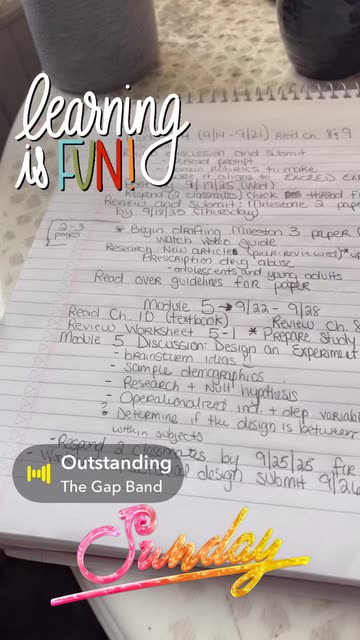 learning
is FUN!
4 (9/14-9/21) Read Ch. 8 & 9
discussion and submit
thread prompt
rubrics to make
aligns to EXCEED
9/17/25 (Wed)
Respond (2 classmates) Check thread
Review and submit: Milestone 2 paper
by 9/18/25 (Thursday)
2-3
pages
* Begin drafting Mileston 3 paper
Watch video guide
Research New articles (peer-reviewed)
Prescription drug abuse
- adolescents and young adults
Read over guidelines for paper
Module 5 → 9/22 - 9/28
Read Ch. 10 (textbook) Review Ch. 8
Review Worksheet 5-1 * Prepare Study
Module 5 Discussion: Design an Experiment
- brainstorm ideas
- Sample demographics
- Research + Null hypothesis
- Operationalized ind. + dep variable
? Determine if the design is between
within subjects
- Respond 2 classmates by 9/25/25 for
design submit 9/26
Outstanding
The Gap Band
Sunday